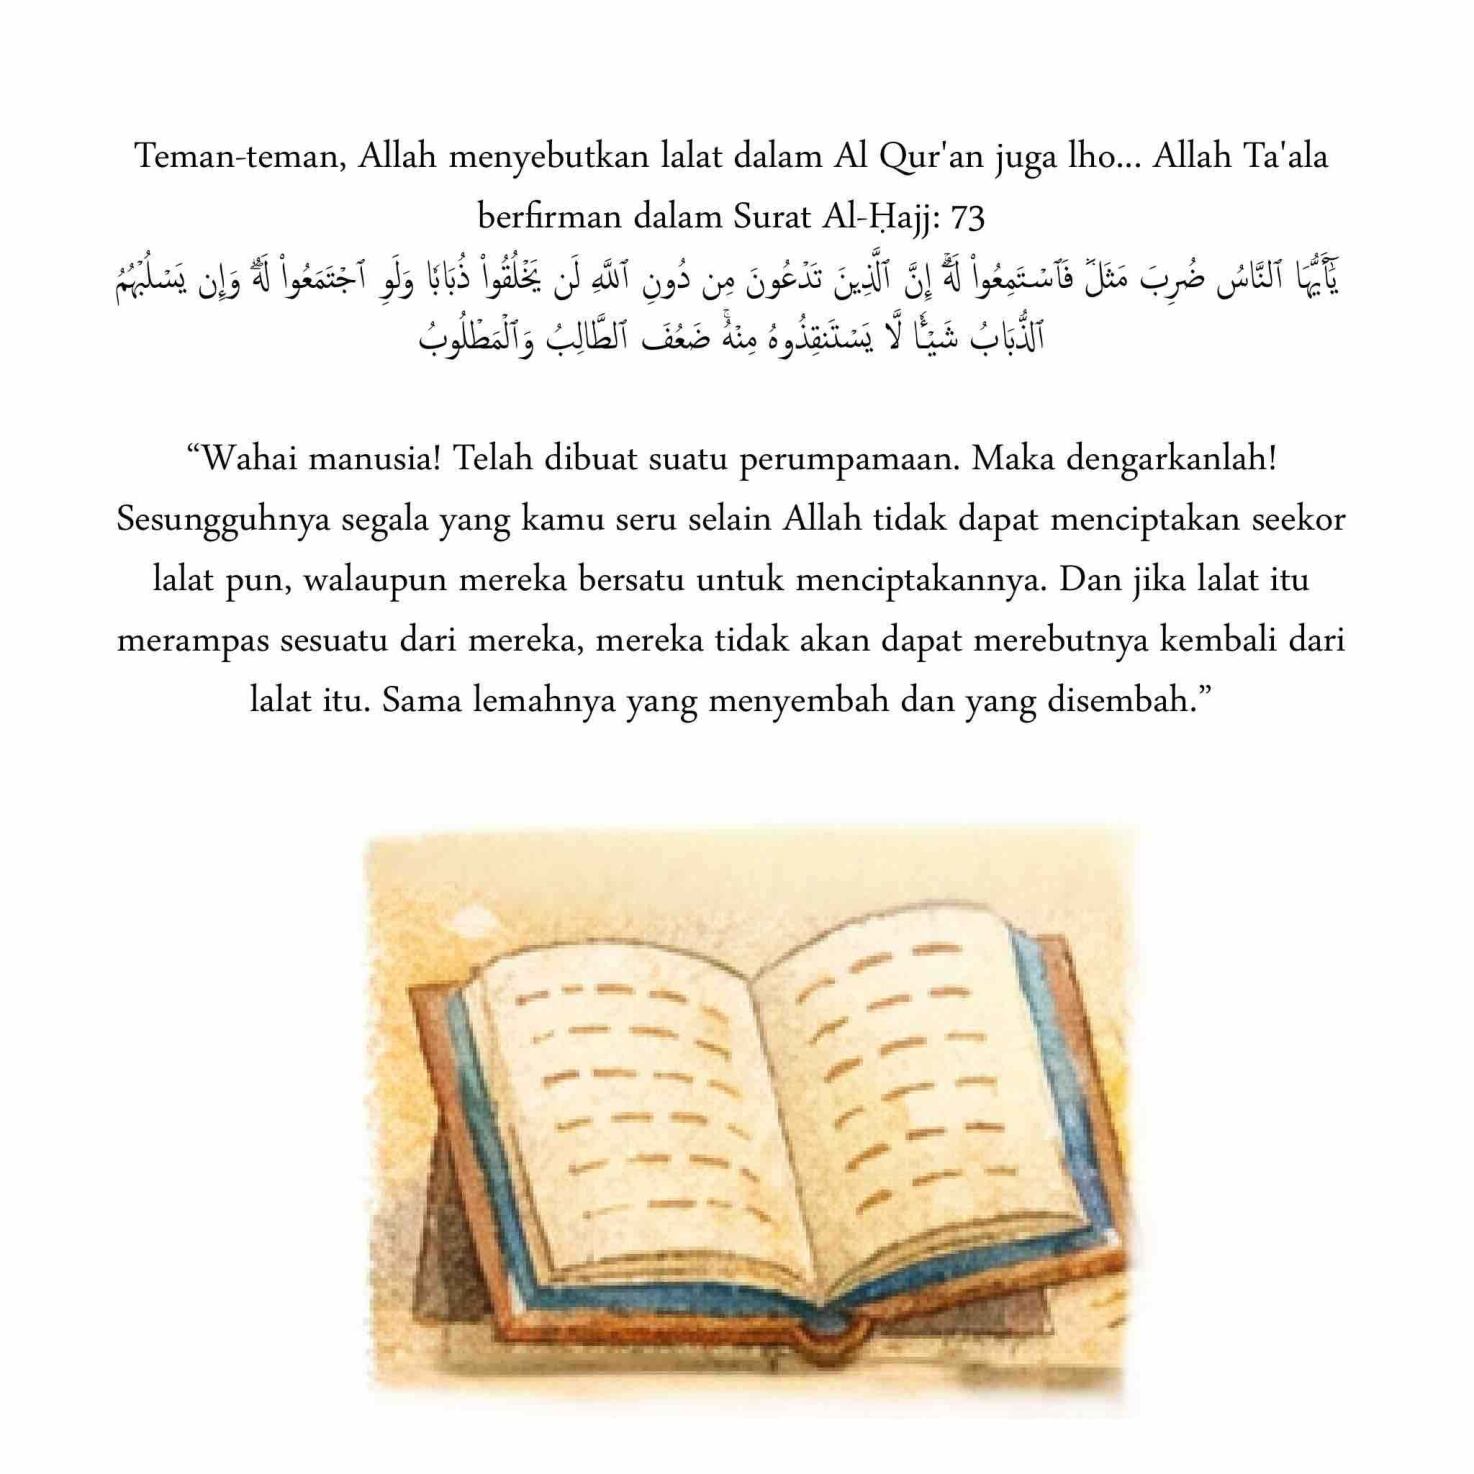 Teman-teman, Allah menyebutkan lalat dalam Al Qur'an juga lho... Allah Ta'ala
berfirman dalam Surat Al-Ḥajj: 73
يَٰٓأَيُّهَا ٱلنَّاسُ ضُرِبَ مَثَلٞ فَٱسۡتَمِعُواْ لَهُۥٓۚ إِنَّ ٱلَّذِينَ تَدۡعُونَ مِن دُونِ ٱللَّهِ لَن يَخۡلُقُواْ ذُبَابٗا وَلَوِ ٱجۡتَمَعُواْ لَهُۥۖ وَإِن يَسۡلُبۡهُمُ
ٱلذُّبَابُ شَيۡـٔٗا لَّا يَسۡتَنقِذُوهُ مِنۡهُۚ ضَعُفَ ٱلطَّالِبُ وَٱلۡمَطۡلُوبُ
“Wahai manusia! Telah dibuat suatu perumpamaan. Maka dengarkanlah!
Sesungguhnya segala yang kamu seru selain Allah tidak dapat menciptakan seekor
lalat pun, walaupun mereka bersatu untuk menciptakannya. Dan jika lalat itu
merampas sesuatu dari mereka, mereka tidak akan dapat merebutnya kembali dari
lalat itu. Sama lemahnya yang menyembah dan yang disembah.”